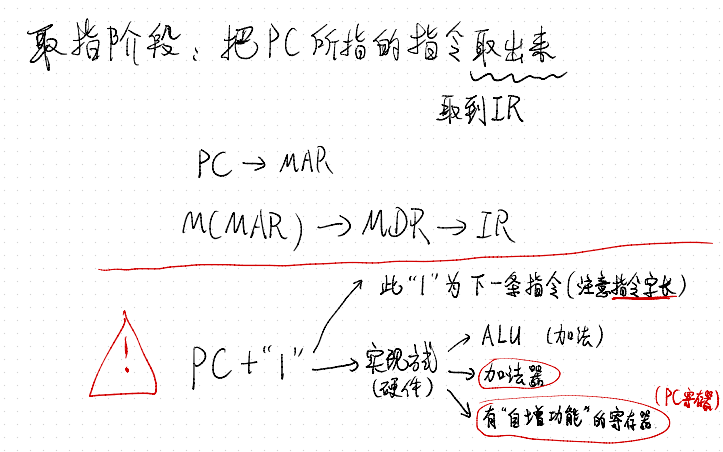 取指阶段：把PC所指的指令取出来
取到IR
PC → MAR
M(MAR) → MDR → IR
此“1”为下一条指令(注意指令字长)
!
PC+“1” → 实现方式
(硬件)
ALU (加法)
加法器
有“自增功能”的寄存器
(PC寄存器)